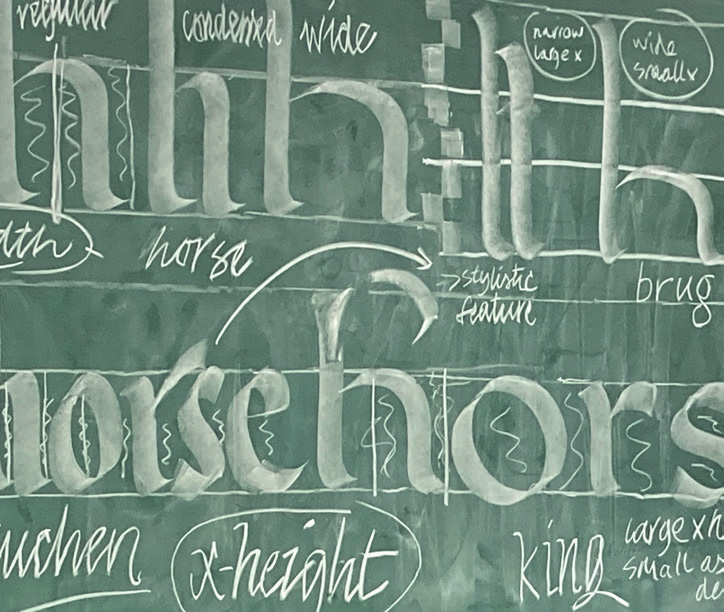 regular condensed wide
narrow
large x
wide
small x
h h h h h
horse
stylistic
feature
brug
horse hors
x-height
king
large x h
small as
de